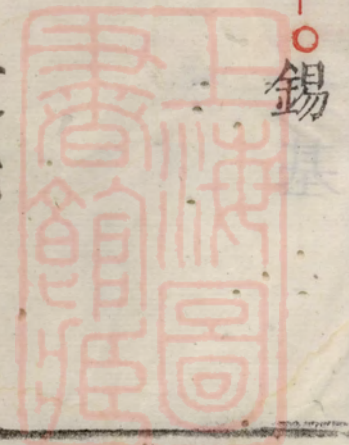 錫
上海圖
書館藏